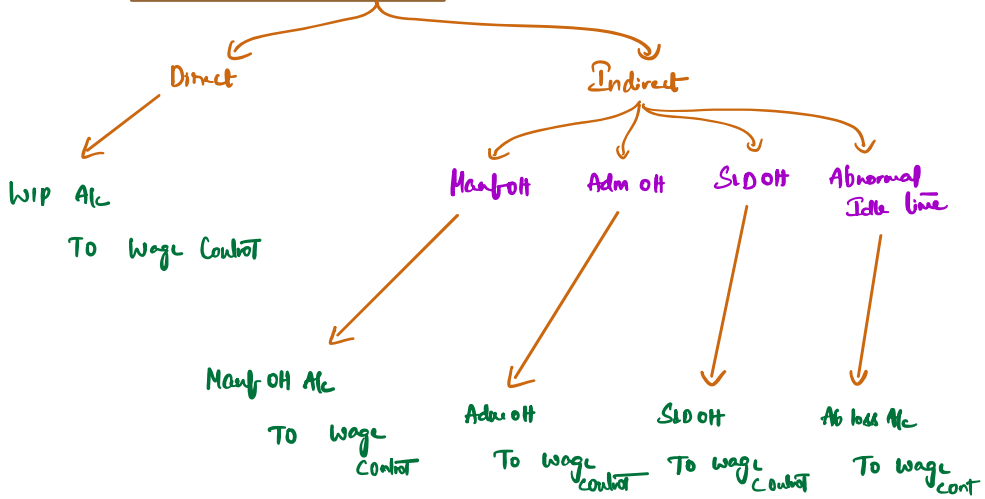 Direct
Indirect
WIP A/c
TO Wage Control
Manf OH
Adm OH
S&D OH
Abnormal
Idle time
Manf OH A/c
TO Wage
Control
Adm OH
TO Wage
Control
S&D OH
TO Wage
Control
Ab loss A/c
TO Wage
Cont